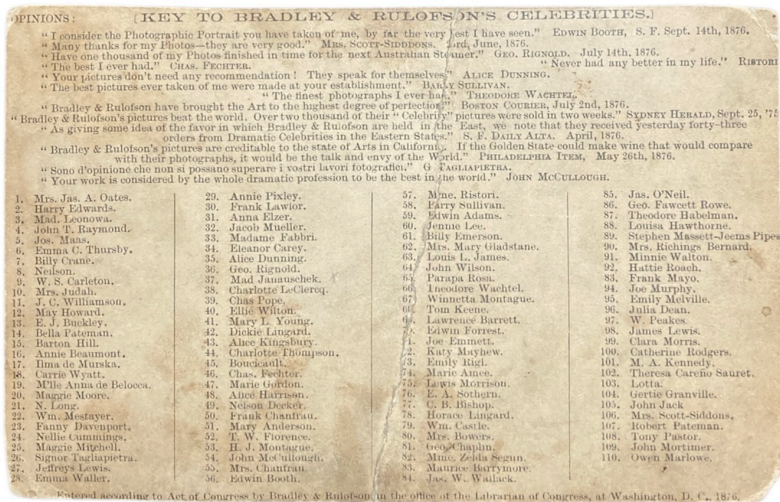 OPINIONS: [KEY TO BRADLEY & RULOFSON'S CELEBRITIES.]
"I consider the Photographic Portrait you have taken of me, by far the very best I have seen." EDWIN BOOTH, S. F. Sept. 14th, 1876.
"Many thanks for my Photos—they are very good." MRS. SCOTT-SIDDONS. 3rd, June, 1876.
"Have one thousand of my Photos finished in time for the next Australian Steamer." GEO. RIGNOLD. July 14th, 1876.
"The best I ever had." CHAS. FECHTER. "Never had any better in my life." RISTORI
"Your pictures don't need any recommendation! They speak for themselves" ALICE DUNNING.
"The best pictures ever taken of me were made at your establishment." BARRY SULLIVAN.
"The finest photographs I ever had." THEODORE WACHTEL.
"Bradley & Rulofson have brought the Art to the highest degree of perfection" BOSTON COURIER, July 2nd, 1876.
"Bradley & Rulofson's pictures beat the world. Over two thousand of their "Celebrity" pictures were sold in two weeks." SYDNEY HERALD, Sept. 25, '75
"As giving some idea of the favor in which Bradley & Rulofson are held in the East, we note that they received yesterday forty-three
orders from Dramatic Celebrities in the Eastern States." S. F. DAILY ALTA. April, 1876.
"Bradley & Rulofson's pictures are creditable to the state of Arts in California. If the Golden State could make wine that would compare
with their photographs, it would be the talk and envy of the World." PHILADELPHIA ITEM, May 26th, 1876.
"Sono d'opinione che non si possano superare i vostri lavori fotografici." G TAGLIAPIETRA.
"Your work is considered by the whole dramatic profession to be the best in the world." JOHN MCCULLOUGH.
1. Mrs. Jas. A. Oates.
2. Harry Edwards.
3. Mad. Leonowa.
4. John T. Raymond.
5. Jos. Maas.
6. Emma C. Thursby.
7. Billy Crane.
8. Neilson.
9. W. S. Carleton.
10. Mrs. Judah.
11. J. C. Williamson.
12. May Howard.
13. E. J. Buckley.
14. Bella Pateman.
15. Barton Hill.
16. Annie Beaumont.
17. Ilma de Murska.
18. Carrie Wyatt.
19. M'lle Anna de Belocca.
20. Maggie Moore.
21. N. Long.
22. Wm. Mestayer.
23. Fanny Davenport.
24. Nellie Cummings.
25. Maggie Mitchell.
26. Signor Tagliapietra.
27. Jeffreys Lewis.
28. Emma Waller.
29. Annie Pixley.
30. Frank Lawlor.
31. Anna Elzer.
32. Jacob Mueller.
33. Madame Fabbri.
34. Eleanor Carey.
35. Alice Dunning.
36. Geo. Rignold.
37. Mad Janauschek.
38. Charlotte LeClercq.
39. Chas Pope.
40. Ellie Wilton.
41. Mary L. Young.
42. Dickie Lingard.
43. Alice Kingsbury.
44. Charlotte Thompson.
45. Boucicault.
46. Chas. Fechter.
47. Marie Gordon.
48. Alice Harrison.
49. Nelson Decker.
50. Frank Chanfrau.
51. Mary Anderson.
52. T. W. Florence.
53. H. J. Montague.
54. John McCullough.
55. Mrs. Chanfrau.
56. Edwin Booth.
57. Mme. Ristori.
58. Barry Sullivan.
59. Edwin Adams.
60. Jennie Lee.
61. Billy Emerson.
62. Mrs. Mary Gladstane.
63. Louis L. James.
64. John Wilson.
65. Parapa Rosa.
66. Theodore Wachtel.
67. Winnetta Montague.
68. Tom Keene.
69. Lawrence Barrett.
70. Edwin Forrest.
71. Joe Emmett.
72. Katy Mayhew.
73. Emily Rigl.
74. Marie Amee.
75. Lewis Morrison.
76. E. A. Sothern.
77. C. B. Bishop.
78. Horace Lingard.
79. Wm. Castle.
80. Mrs. Bowers.
81. Geo. Chaplin.
82. Mme. Zelda Segun.
83. Maurice Barrymore.
84. Jas. W. Wallack.
85. Jas. O'Neil.
86. Geo. Fawcett Rowe.
87. Theodore Habelman.
88. Louisa Hawthorne.
89. Stephen Massett-Jeems Pipes
90. Mrs. Richings Bernard.
91. Minnie Walton.
92. Hattie Roach.
93. Frank Mayo.
94. Joe Murphy.
95. Emily Melville.
96. Julia Dean.
97. W. Peakes.
98. James Lewis.
99. Clara Morris.
100. Catherine Rodgers.
101. M. A. Kennedy.
102. Theresa Careño Sauret.
103. Lotta.
104. Gertie Granville.
105. John Jack
106. Mrs. Scott-Siddons.
107. Robert Pateman.
108. Tony Pastor.
109. John Mortimer.
110. Owen Marlowe.
Entered according to Act of Congress by Bradley & Rulofson, in the office of the Librarian of Congress, at Washington, D. C., 1876.